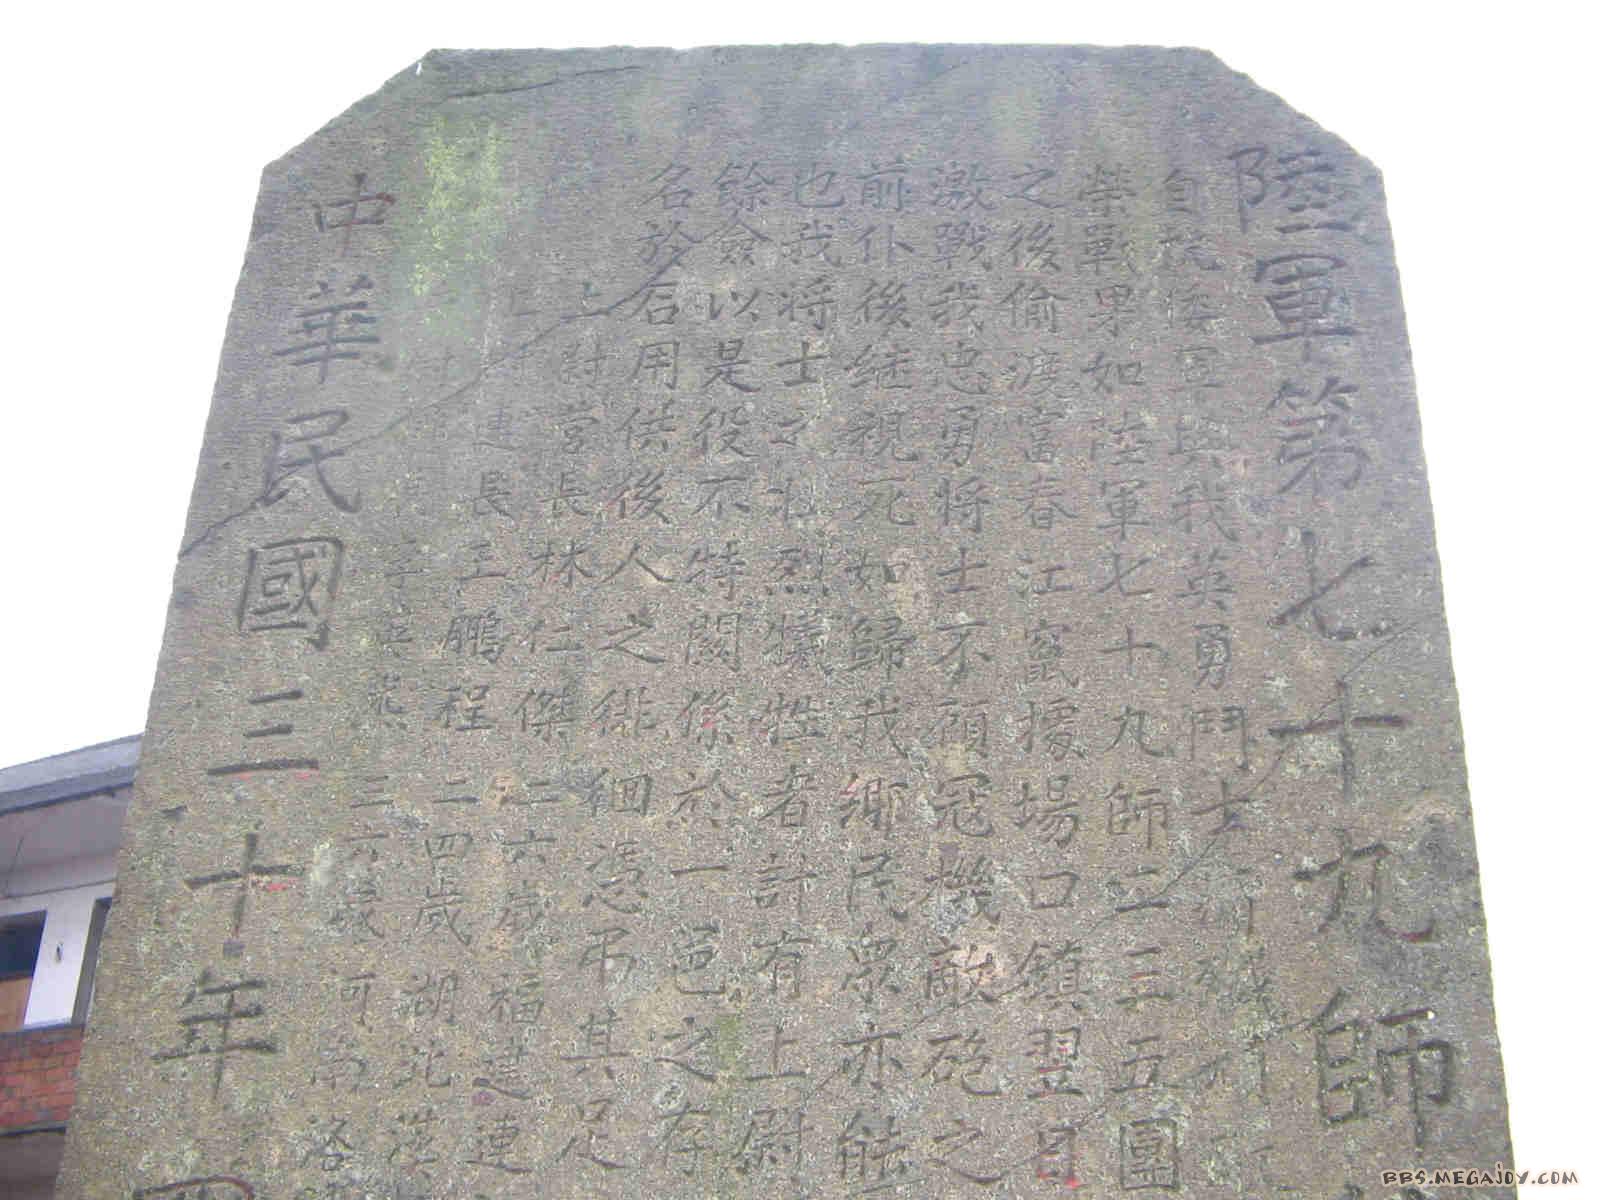 陸軍第七十九師
自抗倭軍興我英勇鬥士
榮戰果如陸軍七十九師二三五團
之後偷渡富春江竄擾場口鎮翌日
激戰我忠勇將士不顧寇機敵砲之
前仆後继視死如歸我鄉民眾亦能
也我将士之壯烈犧牲者計有上尉
餘僉以是役不特關係於一邑之存
名於石用供後人之徘徊憑吊其足
上尉營長林仁傑二六歲福建連
連長王鵬程二四歲湖北漢
李英 三六歲河南洛
中華民國三十年四
BBS.MEGAJOY.COM